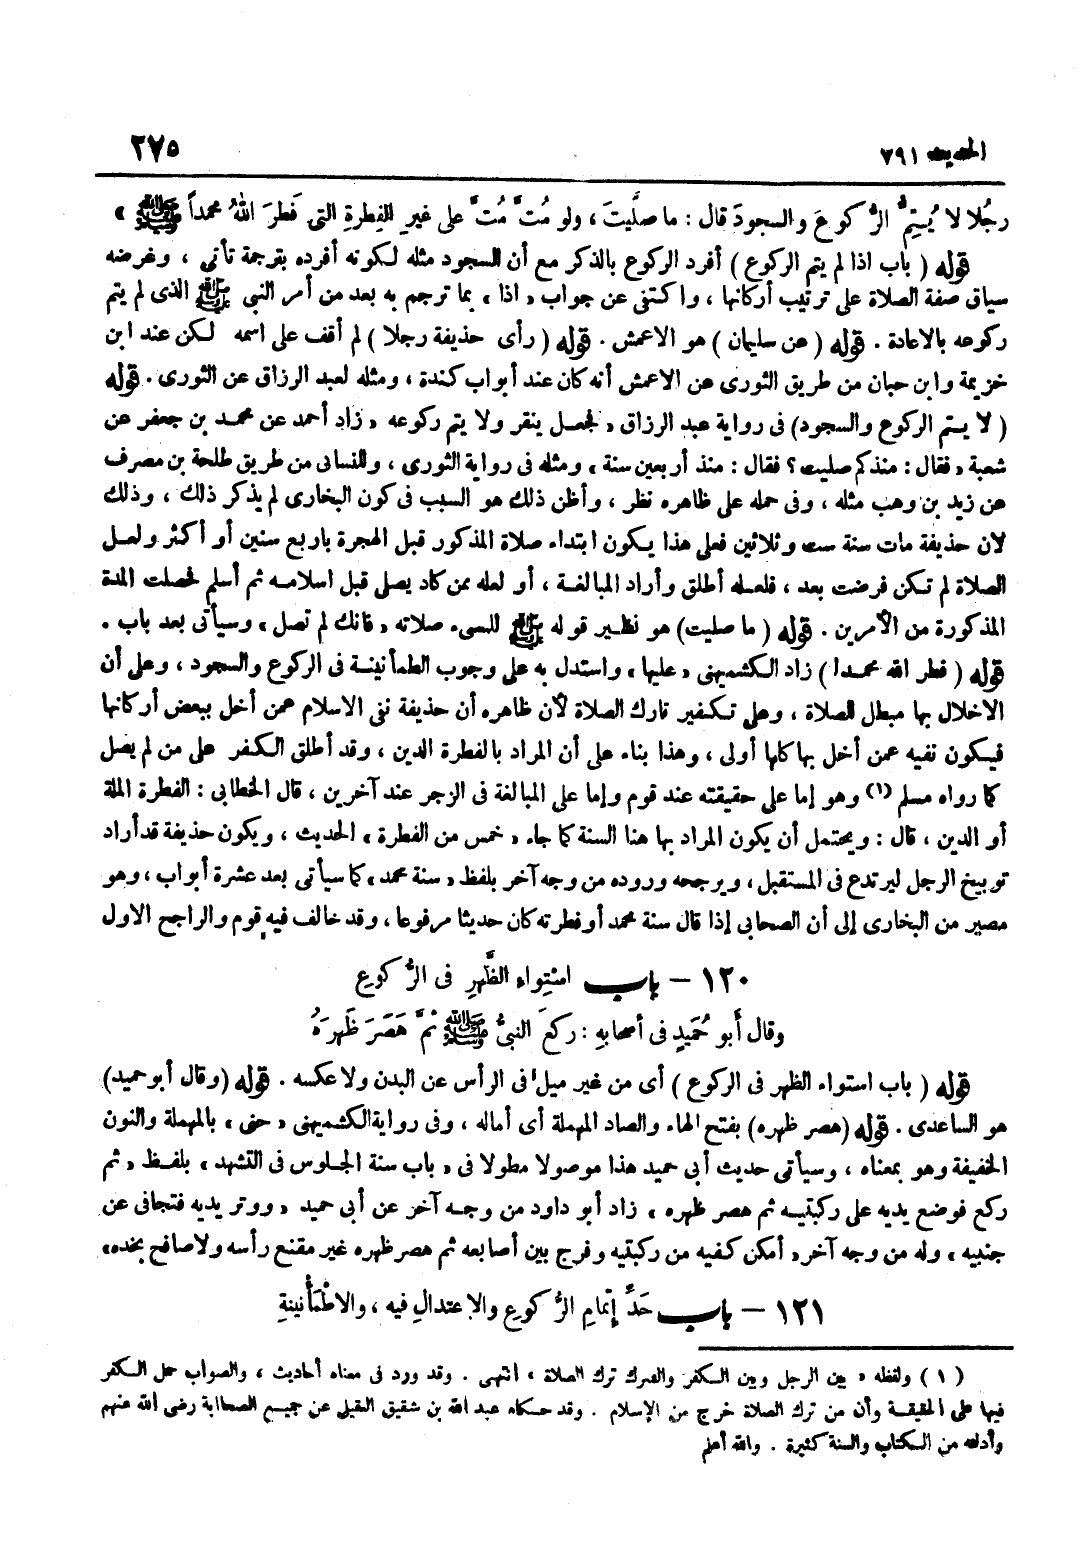 الحديث ٧٩١
٢٧٥
رجُلا لا يُتِمُّ الرُّكوعَ والسجودَ قال : ما صلَّيتَ ، ولو مُتَّ مُتَّ على غيرِ الفِطرةِ التى فَطرَ اللهُ محمداً ﷺ »
قوله ( باب اذا لم يتم الركوع ) أفرد الركوع بالذكر مع أن السجود مثله لكونه أفرده بترجمة تأتى ، وغرضه
سياق صفة الصلاة على ترتيب أركانها ، واكتفى عن جواب « اذا » بما ترجم به بعد من أمر النبى ﷺ الذى لم يتم
ركوعه بالاعادة . قوله ( عن سليمان ) هو الاعمش . قوله ( رأى حذيفة رجلا ) لم أقف على اسمه لكن عند ابن
خزيمة وابن حبان من طريق الثورى عن الاعمش أنه كان عند أبواب كندة ، ومثله لعبد الرزاق عن الثورى . قوله
( لا يتم الركوع والسجود ) فى رواية عبد الرزاق « فجعل ينقر ولا يتم ركوعه « زاد أحمد عن محمد بن جعفر عن
شعبة « فقال : منذ كم صليت ؟ فقال : منذ أربعين سنة » ومثله فى رواية الثورى ، وللنسائى من طريق طلحة بن مصرف
عن زيد بن وهب مثله ، وفى حمله على ظاهره نظر ، وأظن ذلك هو السبب فى كون البخارى لم يذكر ذلك ، وذلك
لان حذيفة مات سنة ست وثلاثين فعلى هذا يكون ابتداء صلاة المذكور قبل الهجرة باربع سنين أو أكثر ولعل
الصلاة لم تكن فرضت بعد ، فلعله أطلق وأراد المبالغة ، أو لعله ممن كان يصلى قبل اسلامه ثم أسلم فحصلت المدة
المذكورة من الأمرين . قوله ( ما صليت ) هو نظير قوله ﷺ للمسىء صلاته « فانك لم تصل » وسيأتى بعد باب .
قوله ( فطر الله محمدا ) زاد الكشميهنى « عليها » واستدل به على وجوب الطمأنينة فى الركوع والسجود ، وعلى أن
الاخلال بها مبطل للصلاة ، وعلى تكفير تارك الصلاة لأن ظاهره أن حذيفة نفى الاسلام عمن أخل ببعض أركانها
فيكون نفيه عمن أخل بها كلها أولى ، وهذا بناء على أن المراد بالفطرة الدين ، وقد أطلق الكفر على من لم يصل
كما رواه مسلم (١) وهو إما على حقيقته عند قوم وإما على المبالغة فى الزجر عند آخرين ، قال الخطابى : الفطرة الملة
أو الدين ، قال : ويحتمل أن يكون المراد بها هنا السنة كما جاء « خمس من الفطرة » الحديث ، ويكون حذيفة قد أراد
توبيخ الرجل ليرتدع فى المستقبل ، ويرجحه وروده من وجه آخر بلفظ « سنة محمد » كما سيأتى بعد عشرة أبواب ، وهو
مصير من البخارى إلى أن الصحابى إذا قال سنة محمد أو فطرته كان حديثا مرفوعا ، وقد خالف فيه قوم والراجح الاول
١٢٠ – باب استواءِ الظَّهرِ فى الرُّكوعِ
وقال أبو حُمَيدٍ فى أصحابهِ : ركعَ النبىُّ ﷺ ثمَّ هَصَرَ ظَهرَهُ
قوله ( باب استواء الظهر فى الركوع ) أى من غير ميل فى الرأس عن البدن ولا عكسه . قوله ( وقال أبو حميد )
هو الساعدى . قوله ( هصر ظهره ) بفتح الهاء والصاد المهملة أى أماله ، وفى رواية الكشميهنى « حنى » بالمهملة والنون
الخفيفة وهو بمعناه ، وسيأتى حديث أبى حميد هذا موصولا مطولا فى « باب سنة الجلوس فى التشهد » بلفظ « ثم
ركع فوضع يديه على ركبتيه ثم هصر ظهره » زاد أبو داود من وجه آخر عن أبى حميد « ووتر يديه فتجافى عن
جنبيه » وله من وجه آخر « أمكن كفيه من ركبتيه وفرج بين أصابعه ثم هصر ظهره غير مقنع رأسه ولا صافح بخده »
١٢١ – باب حَدِّ إتمامِ الرُّكوعِ والاعتدالِ فيه ، والاطْمَأْنينةِ
( ١ ) ولفظه « بين الرجل وبين الكفر والشرك ترك الصلاة » انتهى . وقد ورد فى معناه أحاديث ، والصواب حمل الكفر
فيها على الحقيقة وأن من ترك الصلاة خرج من الإسلام . وقد حكاه عبد الله بن شقيق العقيلى عن جميع الصحابة رضى الله عنهم
وأدلته من الكتاب والسنة كثيرة . والله أعلم